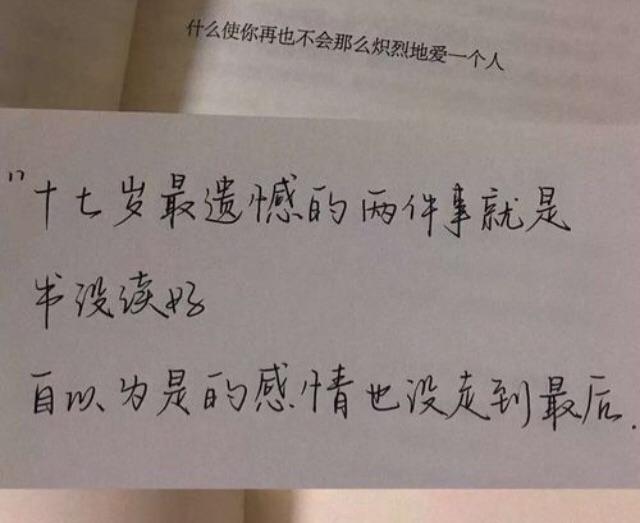 什么使你再也不会那么炽烈地爱一个人
"十七岁最遗憾的两件事就是
书没读好
自以为是的感情也没走到最后.